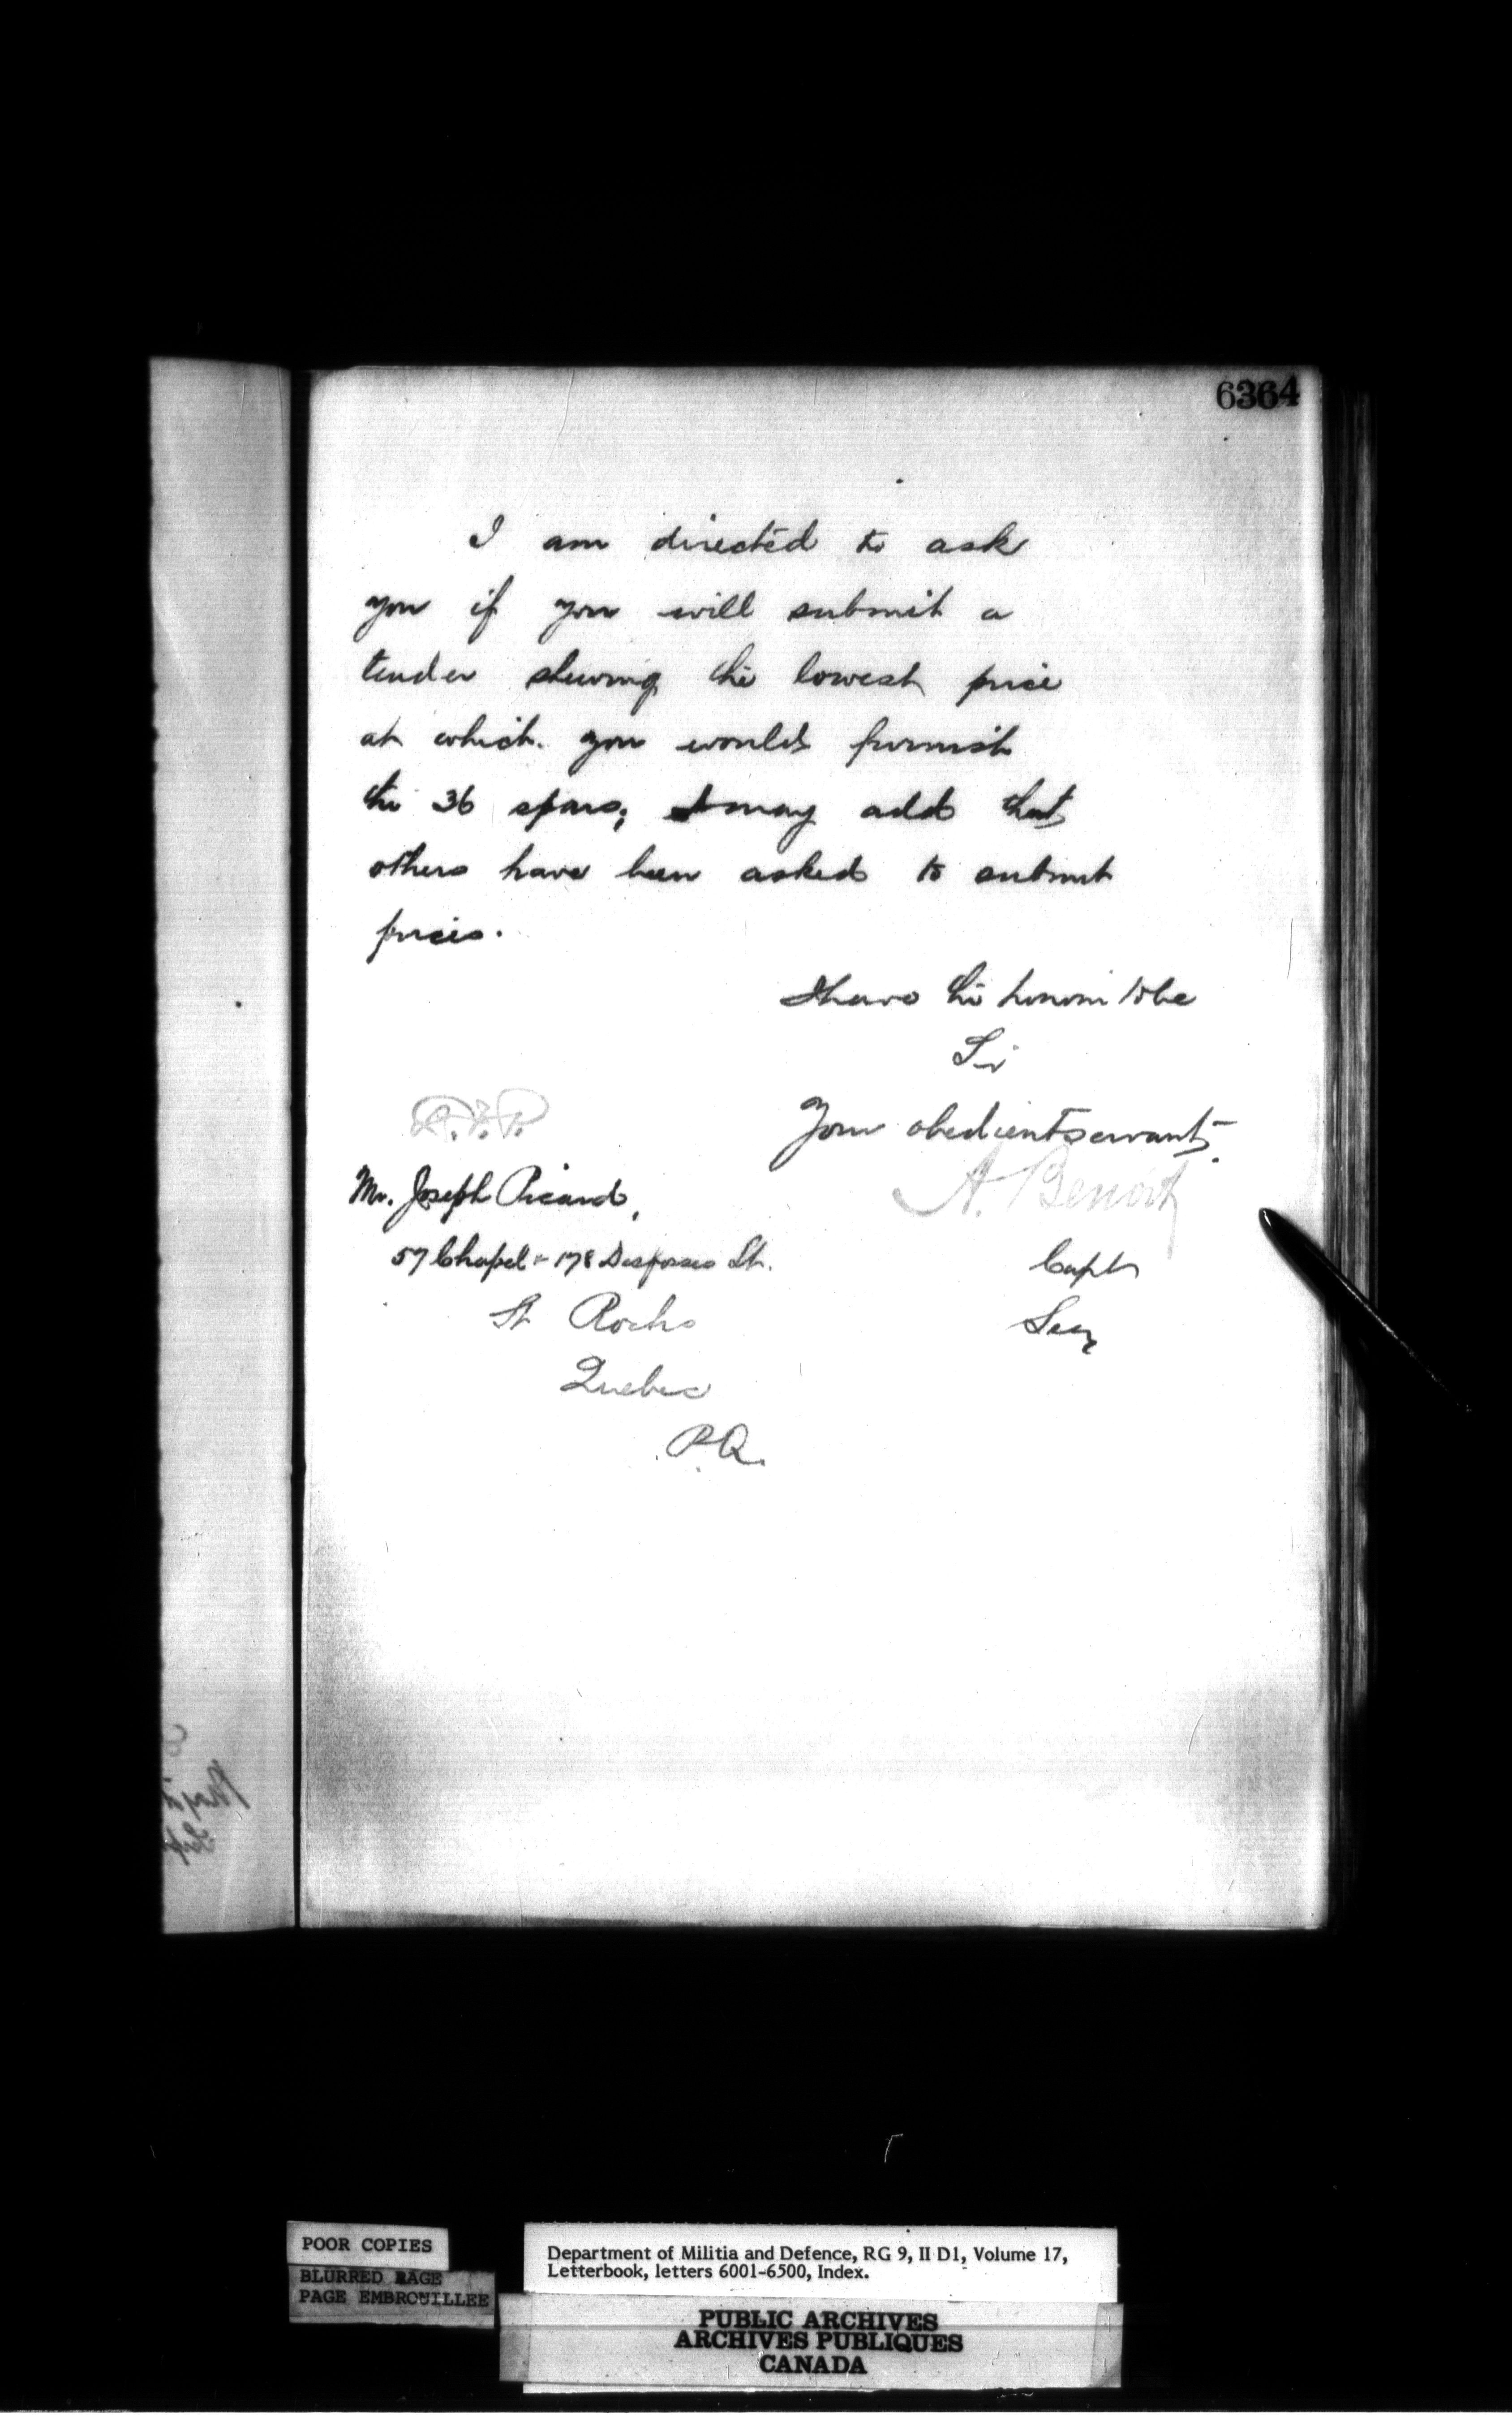 6364
I am directed to ask
you if you will submit a
tender shewing the lowest price
at which you would furnish
the 36 spars; I may add that
others have been asked to submit
prices.
I have the honour to be
Sir
Your obedient servant
A. Benoit
Capt
Secy
Mr. Joseph Picard,
57 Chapel - 178 St.
St Rochs
Quebec
P.Q.
POOR COPIES
BLURRED PAGE
PAGE EMBROUILLEE
Department of Militia and Defence, RG 9, II D1, Volume 17,
Letterbook, letters 6001-6500, Index.
PUBLIC ARCHIVES
ARCHIVES PUBLIQUES
CANADA